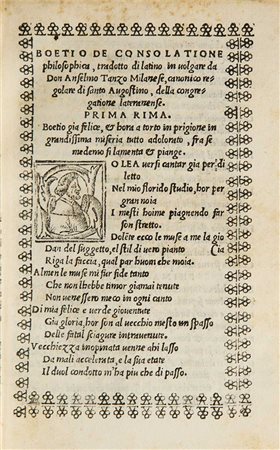 BOETIO DE CONSOLATIONE
philosophica, tradotto di latino in uolgare da
Don Anselmo Tanzo Milanese, canonico re
golare di santo Augostino, della congre
gatione lateranense.
PRIMA RIMA.
Boetio gia felice, & hora a torto in prigione in
grandissima miseria tutto adolorato, fra se
medemo si lamenta & piange.
VOLEA uersi cantar gia per di
letto
Nel mio florido studio, hor per
gran noia
I mesti hoime piagnendo far
son stretto.
Dolẽte ecco le muse a me la gio
Dan del suggetto, e'l stil di uero pianto (ia
Riga la faccia, qual par huom che moia.
Almen le muse mi fur fide tanto
Che non l'hebbe timor giamai tenute
Non uenessero meco in ogni canto
Di mia felice e uerde giouentute
Gia gloria, hor son al uecchio mesto un spasso
Delle fatal sciagure interuenute.
Vecchiezza inopinata uenne ahi lasso
Da mali accelerata, e la sua etate
Il duol condotto m'ha piu che di passo.